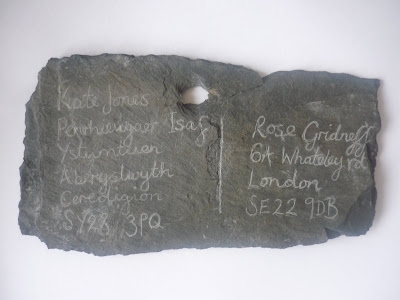 Kate Jones
Penrhiwgaer Isaf
Ystumtuen
Aberystwyth
Ceredigion
SY23 3PQ
Rose Gridneff
61A Whateley rd
London
SE22 9DB